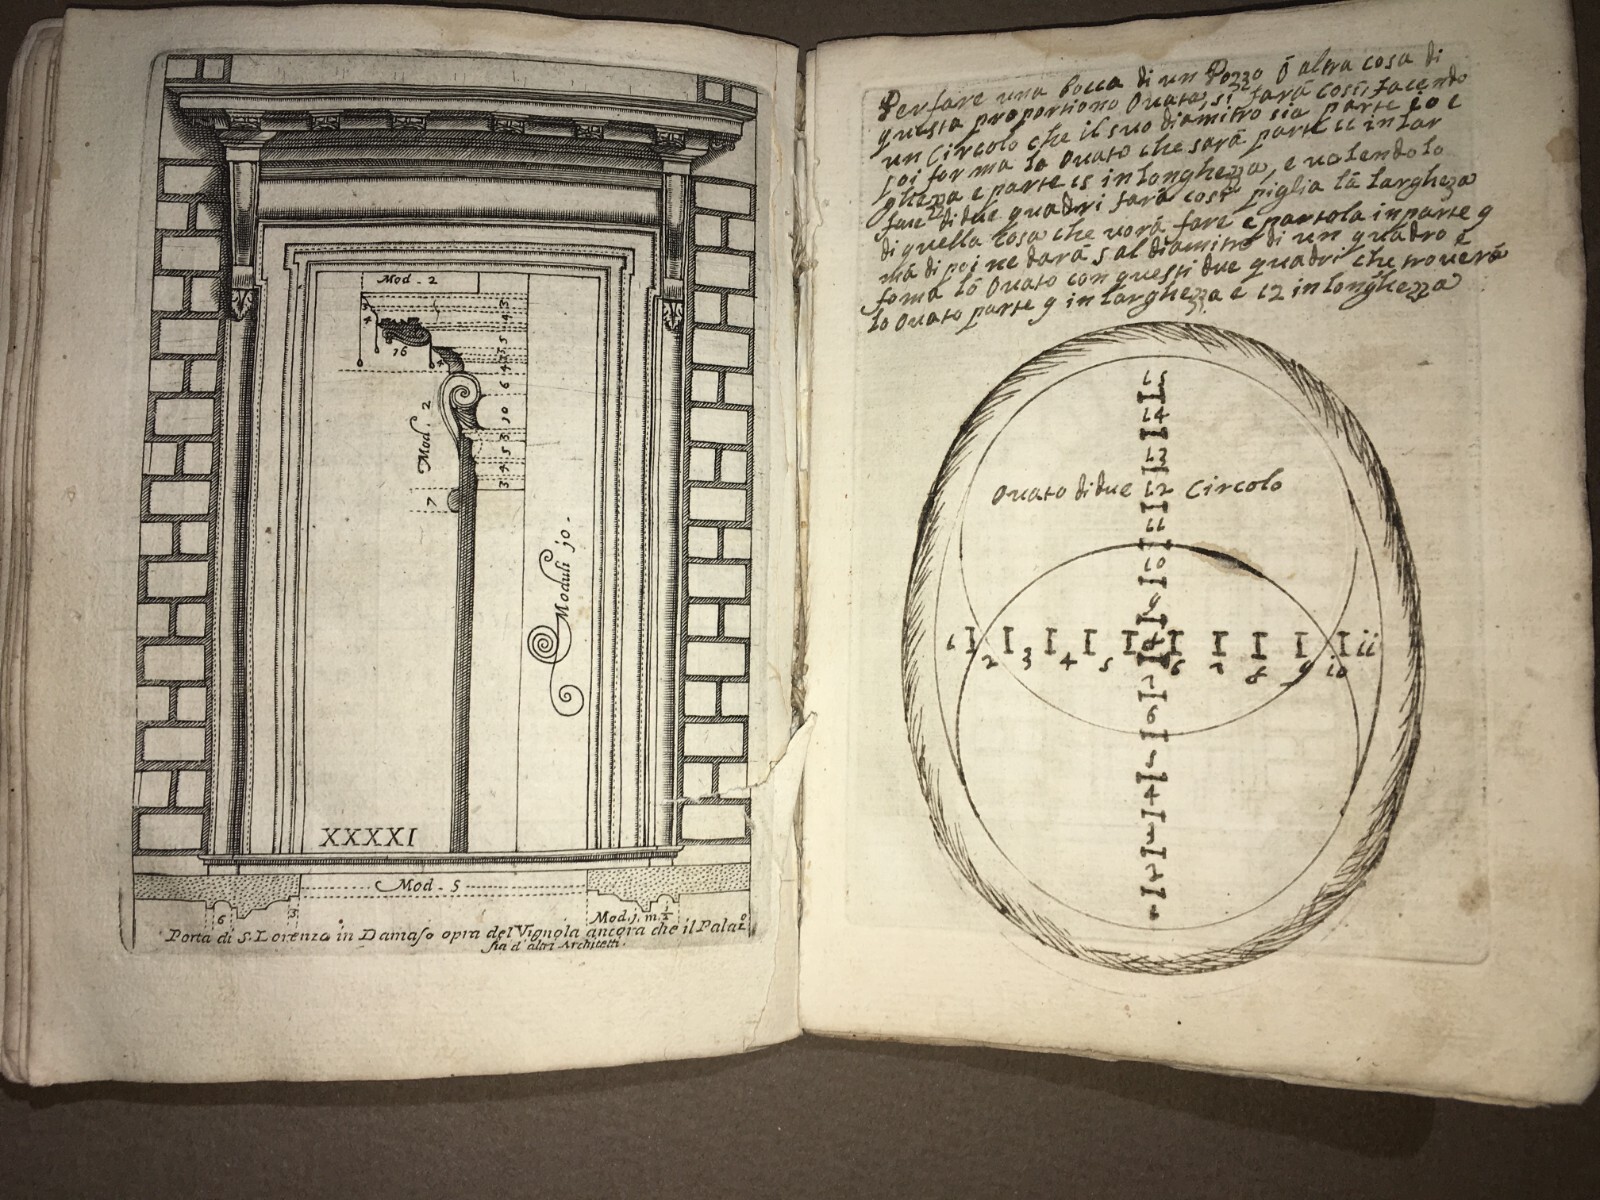 Mod. 2
3
4
16
4
3
4
5
6
10
3
5
4
3
Mod. 2
7
Moduli jo.
XXXXI
Mod. 5
6
3
Mod. j. m. ½
Porta di S. Lorenzo in Damaso opra del Vignola ancora che il Palaᵒz
sia d'altri Architetti.
Per fare una bocca di un Pozzo ò altra cosa di
questa proportione Ouata, si farà così, facendo
un Circolo che il suo diamitro sia parte io e
poi forma lo Ouato che sarà parte ii in lar
ghezza e parte i5 in longhezza, e uolendolo
fare di due quadri farà così piglia la larghezza
di quella cosa che uorà fare e partola in parte 9
ma di poi ne darà 5 al diamitro di un quadro e
forma lo Ouato con questi due quadri che trouerà
lo Ouato parte 9 in larghezza e 12 in longhezza
i5
i4
i3
Ouato di due i2 Circolo
ii
io
9
8
i 2 3 4 5 6 7 8 9 io ii
7
6
5
4
3
2
i